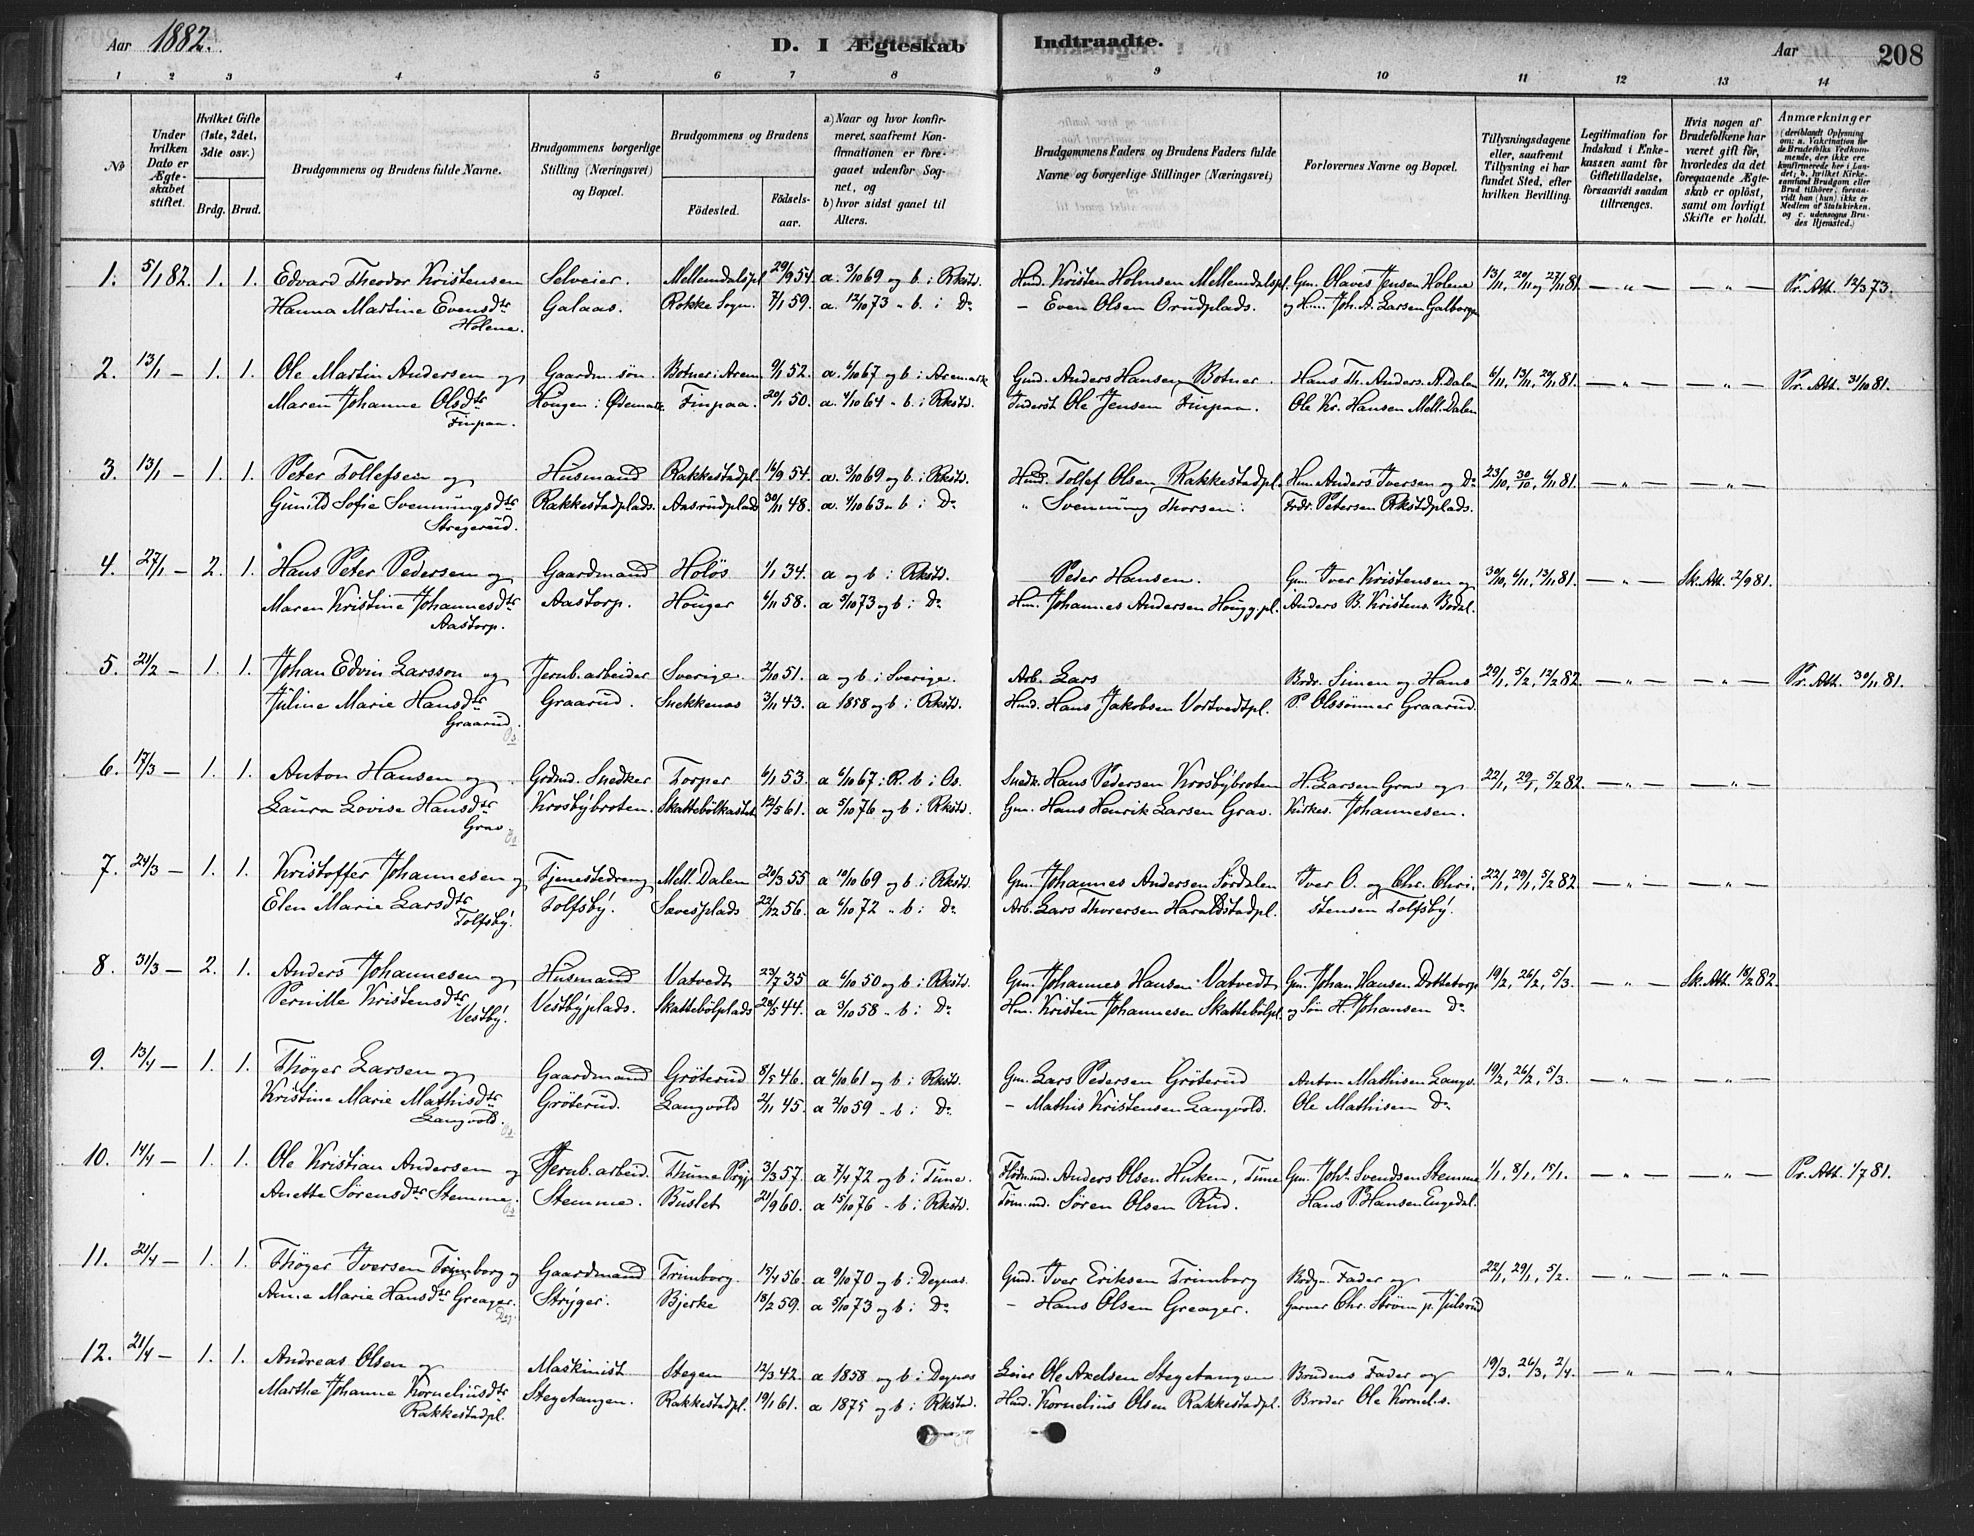 Aar 1882. D. I Ægteskab Indtraadte. Aar 208
1 2 3 4 5 6 7 8 9 10 11 12 13 14
No
Under hvilken Dato er Ægteskabet stiftet.
Hvilket Gifte (1ste, 2det, 3die osv.)
Brdg. Brud.
Brudgommens og Brudens fulde Navne.
Brudgommens borgerlige Stilling (Næringsvei) og Bopæl.
Brudgommens og Brudens
Fødested. Fødsels-aar.
a) Naar og hvor konfirmeret, saafremt Konfirmationen er foregaaet udenfor Sognet, og
b) hvor sidst gaaet til Alters.
Brudgommens Faders og Brudens Faders fulde Navne og borgerlige Stillinger (Næringsvei)
Forlovernes Navne og Bopæl.
Tillysningsdagene eller, saafremt Tillysning ei har fundet Sted, efter hvilken Bevilling.
Legitimation for Indskud i Enkekassen samt for Giftetilladelse, forsaavidt saadan tiltrænges.
Hvis nogen af Brudefolkene har været gift før, hvorledes da det foregaaende Ægteskab er opløst, samt om lovligt Skifte er holdt.
Anmærkninger
(deriblandt Oplysning om: a. Vakcination for de Brudefolks Vedkommende, der ikke ere konfirmerede her i Landet; b. hvilket Kirkesamfund Brudgom eller Brud tilhører, forsaavidt han (hun) ikke er Medlem af Statskirken, og c. udensogns Brudes Hjemsted.)
1. 5/1 82. 1. 1. Edvard Theodor Kristensen Selveier. Mellemdalspl 29/9 54. a. 3/10 69 og b. i Rkstd. Hmd. Kristen Holmsen Mellemdalspl. Gm. Olaves Jensen Holene 13/11, 20/11 og 27/11 81. — „ — — „ — Pr. Att. 12/3 73.
Hanna Martine Evensdtr Galaas. Rokke Sogn. 7/1 59. a. 12/10 73 „ b. i Do — Even Olsen Orudplads. og Hm. Joh. A. Larsen Galborgn
Holene.
2. 13/1 — 1. 1. Ole Martin Andersen og Gaardm. søn. Botner i Arem 9/1 52. a. 6/10 67 og b i Aremark Gmd. Anders Hansen Botner. Hans Th. Anders. N. Dalen 6/11, 13/11, 20/11 81. — „ — — „ — Pr. Att. 31/10 81.
Maren Johanne Olsdtr Hougen i Ødemark. Finpaa. 20/1 50. a. 4/10 64 „ b. i Rkstd. Inderst Ole Jensen Finpaa. Ole Kr. Hansen Mell. Dalen
Finpaa.
3. 13/1 — 1. 1. Peter Tollefsen og Husmand Rakkestadpl. 16/9 54. a. 3/10 69 og b. i Rkstd. Hmd. Tollef Olsen Rakkestadpl. Hm. Anders Iversen og Do 23/10, 30/10, 6/11 81. — „ — — „ —
Gunild Sofie Svenningsdtr Rakkestadplads. Aasrudplads 30/11 48. a. 4/10 63 „ b i Do „ Svenning Thorsen. Frdr. Petersen Rkstdplads.
Stregerud.
4. 27/1 — 2. 1. Hans Peter Pedersen og Gaardmand Holös 1/1 34. a og b i Rkstd. — Peder Hansen. Gm. Iver Kristensen og 30/10, 6/11, 13/11 81. — „ — Sk. Att. 2/9 81.
Maren Kristine Johannesdtr Aastorp. Houger 6/11 58. a 5/10 73 og b i Do Hm. Johannes Andersen Hougg. pl. Anders B. Kristens. Bodal.
Aastorp.
5. 21/2 — 1. 1. Johan Edvin Larsson og Jernb. arbeider Sverige. 2/10 51. a og b i Sverige. Arb. Lars Brdr. Simen og Hans 29/1, 5/2, 12/2 82. — „ — — „ — Pr. Att. 30/11 81.
Juline Marie Hansdtr Graarud. Snekkenas 3/11 43. a 1858 og b i Rkstd. Hmd. Hans Jakobsen Vortvedtpl. P. Olssønner Graarud.
Graarud. Os
6. 17/3 — 1. 1. Anton Hansen og Grdmd. Snedker Torper 6/1 53. a 6/10 67 i R. b i Os. Snedk. Hans Pedersen Krosbybroten H. Larsen Grav og 22/1, 29/1, 5/2 82. — „ — — „ —
Laura Lovise Hansdtr Krosbybroten. Skattebölkastet 12/5 61. a 5/10 76 og b i Rkstd. Gm. Hans Henrik Larsen Grav. Kirkes. Johannesen.
Grav Os
7. 24/3 — 1. 1. Kristoffer Johannesen og Tjenestedreng Mell. Dalen 20/3 55 a 10/10 69 og b i Rkstd. Gm. Johannes Andersen Sördalen Iver O. og Chr. Chri- 22/1, 29/1, 5/2 82. — „ — — „ —
Elen Marie Larsdtr Tolfsby. Savesplads 22/12 56. a 6/10 72 „ b i Do Arb. Lars Thoresen Haraldstadpl. stensen Tolfsby.
Tolfsby.
8. 31/3 — 2. 1. Anders Johannesen og Husmand Vatvedt 23/7 35 a 6/10 50 og b i Rkstd. Gm. Johannes Hansen Vatvedt Gm. Johan Hansen Dottetorp 19/2, 26/2, 5/3. — „ — Sk. Att. 18/2 82.
Pernille Kristensdtr Vestbyplads. Skattebölplads 28/5 44. a 3/10 58 „ b i Do Hm. Kristen Johannesen Skattebölpl. og Søn H. Johansen Do
Vestby.
9. 13/4 — 1. 1. Thöger Larsen og Gaardmand Gröterud 8/5 46. a 6/10 61 og b i Rkstd. Gm. Lars Pedersen Gröterud Anton Mathisen Langv. 19/2, 26/2, 5/3. — „ — — „ —
Kristine Marie Mathisdtr Gröterud. Langvold 2/11 45. a 2/10 59 „ b i Do — Mathis Kristensen Langvold. Ole Mathisen Do
Langvold. Os
10. 14/4 — 1. 1. Ole Kristian Andersen og Jernb. arbeid. Thune Prgj. 3/3 57. a 7/4 72 og b i Tune. Flödmd. Anders Olsen Huken, Tune Gm. Johs Svendsen Stemme 1/1, 8/1, 15/1. — „ — — „ — Pr. Att. 1/7 81.
Anette Sørensdtr Stemme. Stemme. Buslet 21/9 60. a 15/10 76 „ b i Rkstd. Töm.md. Sören Olsen Rud. Hans P. Hansen Engedal.
Os
11. 21/4 — 1. 1. Thöger Iversen Trimborg og Gaardmand Trimborg. 15/4 56. a 9/10 70 og b i Degnas. Gmd. Iver Eriksen Trimborg Brdg. Fader og 22/1, 29/1, 5/2. — „ — — „ —
Anne Marie Hansdtr Greager. Stryger. Bjerke 18/2 59. a 5/10 73 og b i Do — Hans Olsen Greager. Garver Chr. Ström p. Julsrud
Deg.
12. 21/4 — 1. 1. Andreas Olsen og Maskinist Stegen 12/3 42. a 1858 og b i Degnas Leier Ole Axelsen Stegetangen Brudens Fader og 19/3, 26/3, 2/4. — „ — — „ —
Marthe Johanne Korneliusdtr Stegetangen. Rakkestadpl. 19/1 61. a 1875 og b i Rkstad. Hmd. Kornelius Olsen Rakkestadpl. Broder Ole Kornels.
Rakkestadpl.